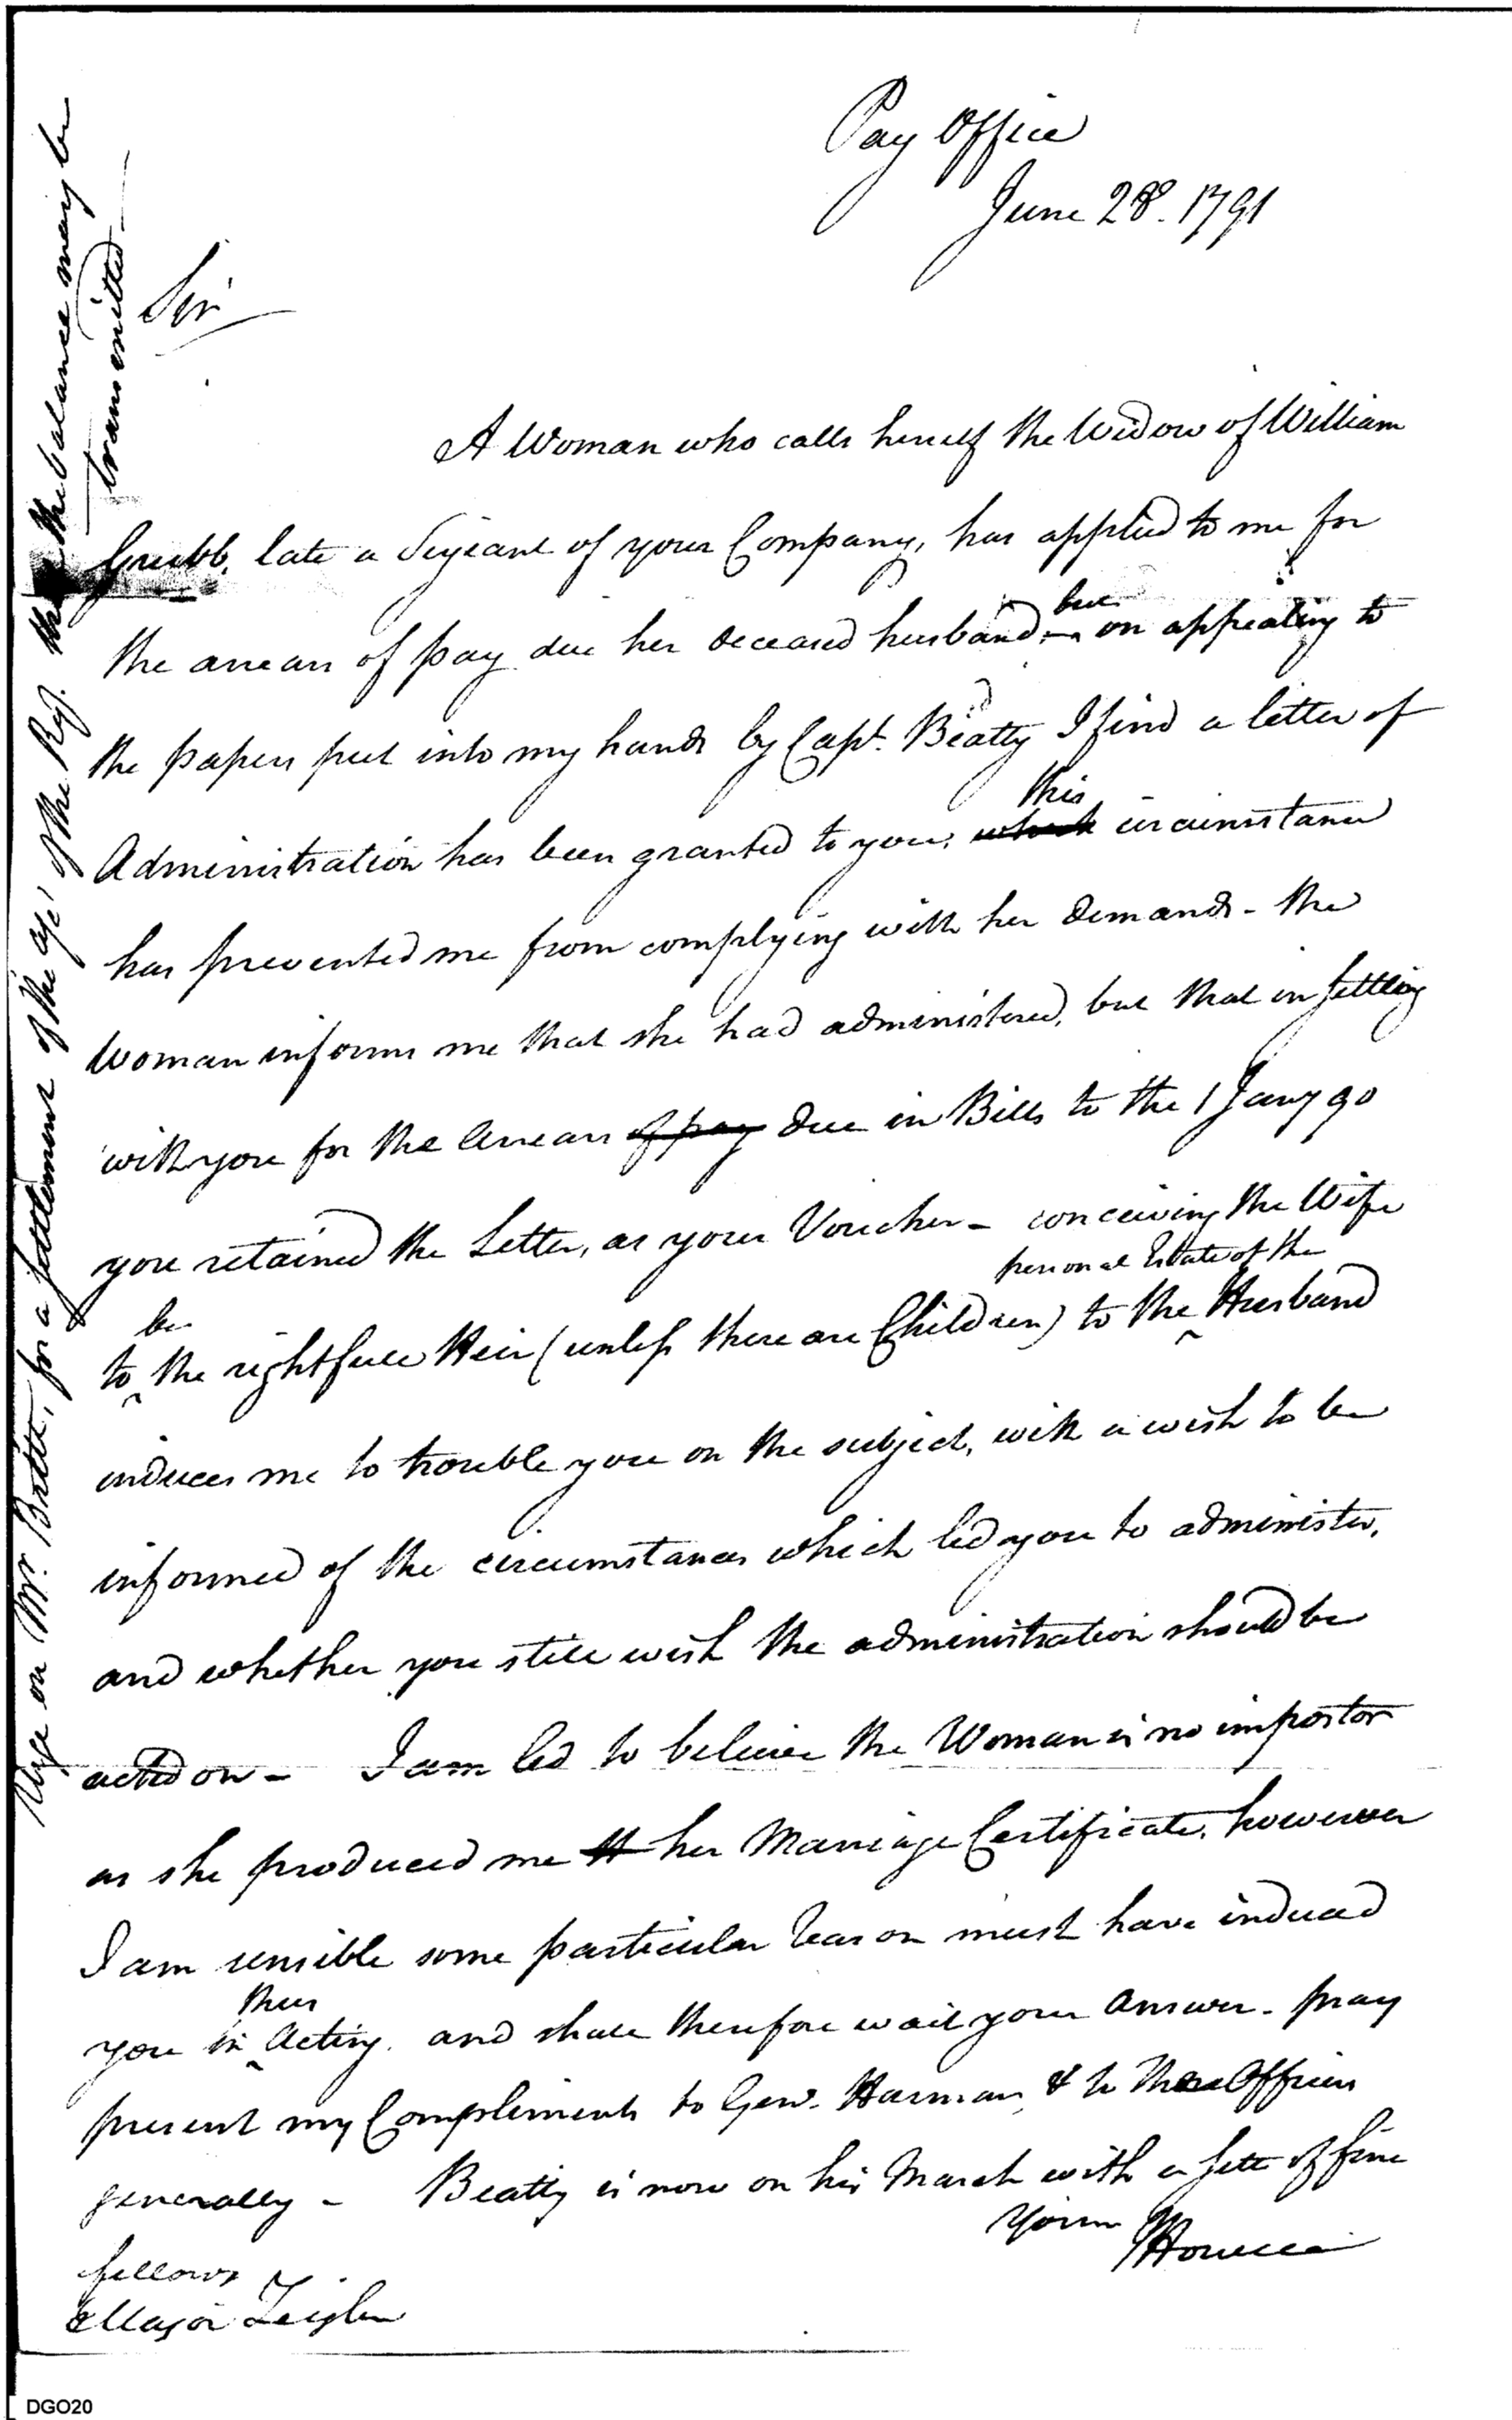 Pay Office
June 28. 1791
Sir
A Woman who calls herself the Widow of William
Grubb, late a Serjeant of your Company, has applied to me for
the arrears of pay due her deceased husband but on appealing to
the papers put into my hands by Capt. Beatty I find a letter of
Administration has been granted to you, which this circumstance
has prevented me from complying with her demands - the
Woman informs me that she had administered, but that in settling
with you for the Arrears of pay due in Bills to the 1 Jany 90
you retained the Letter, as your Voucher - conceiving the Wife
to be the rightfull Heir (unless there are Children) to the personal Estate of the Husband
induces me to trouble you on the subject, with a wish to be
informed of the circumstances which led you to administer,
and whether you still wish the administration should be
acted on - I am led to believe the Woman is no impostor
as she produced me her Marriage Certificate, however
I am sensible some particular Reason must have induced
you in thus Acting, and shall therefore wait your Answer - pray
present my Compliments to Genl. Harmar, & to the Officers
generally - Beatty is now on his March with a sett of fine
fellows
Yours
JHowell
Major Zeigler
on Mr. Britt, for a settlement of the of the Reg. the balance may be
transmitted -
DGO20